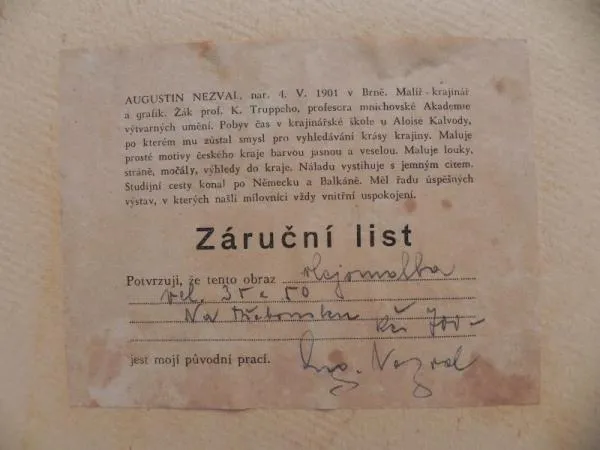 AUGUSTIN NEZVAL, nar. 4. V. 1901 v Brně. Malíř - krajinář
a grafik. Žák prof. K. Truppeho, profesora mnichovské Akademie
výtvarných umění. Pobyv čas v krajinářské škole u Aloise Kalvody,
po kterém mu zůstal smysl pro vyhledávání krásy krajiny. Maluje
prosté motivy českého kraje barvou jasnou a veselou. Maluje louky,
stráně, močály, výhledy do kraje. Náladu vystihuje s jemným citem.
Studijní cesty konal po Německu a Balkáně. Měl řadu úspěšných
výstav, v kterých našli milovníci vždy vnitřní uspokojení.
Záruční list
Potvrzuji, že tento obraz olejomalba
vel. 35 x 50
Na Třeboňsku Kčs 700-
jest mojí původní prací. Aug. Nezval